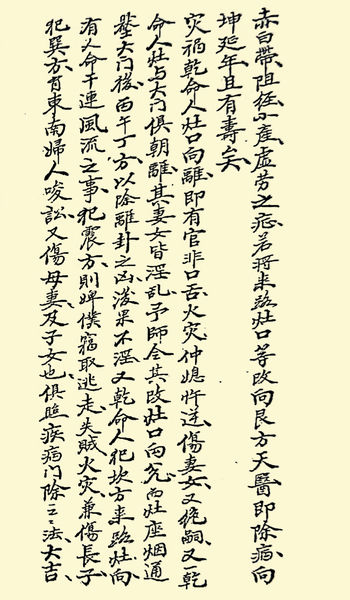 赤白帶、阻經小產、虛劳之症、若將来路灶口等改向艮方天醫、即除病、向
坤延年、且有壽矣、
灾禍乾命人灶口向離、即有官非口舌火灾、仲媳忤逆傷妻女、又绝嗣、又一乾
命人灶与大门俱朝離、其妻女皆淫乱、予師令其改灶口向兊、而灶座烟通
壓大门後丙午丁方以除離卦之凶、後果不淫、又乾命人犯坎方来路灶向
有人命干連風流之事、犯震方、則婢僕窃取逃走失賊火灾、兼傷長子
犯巽方、有東南婦人唆訟、又傷母妻及子女也、俱照疾病门除之之法、大吉、